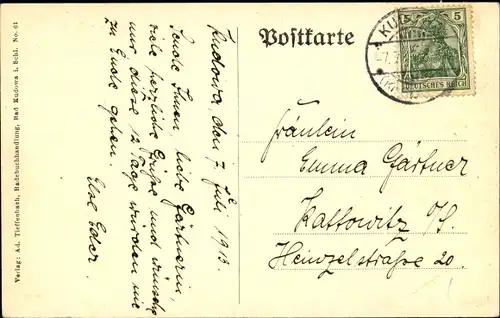 Verlag: Ad. Tieffenbach, Badebuchhandlung, Bad Kudowa i. Schl. No. 61
Kudowa, den 7. Juli 1913.
Sende Ihnen, liebe Gärtnerin,
viele herzliche Grüße und wünsche
nur diese 12 Tage würden nie
zu Ende gehen.
Ilse Eder.
Postkarte
5 5
DEUTSCHES REICH
Fräulein
Emma Gärtner
Kattowitz O/S.
Heinzelstraße 20.